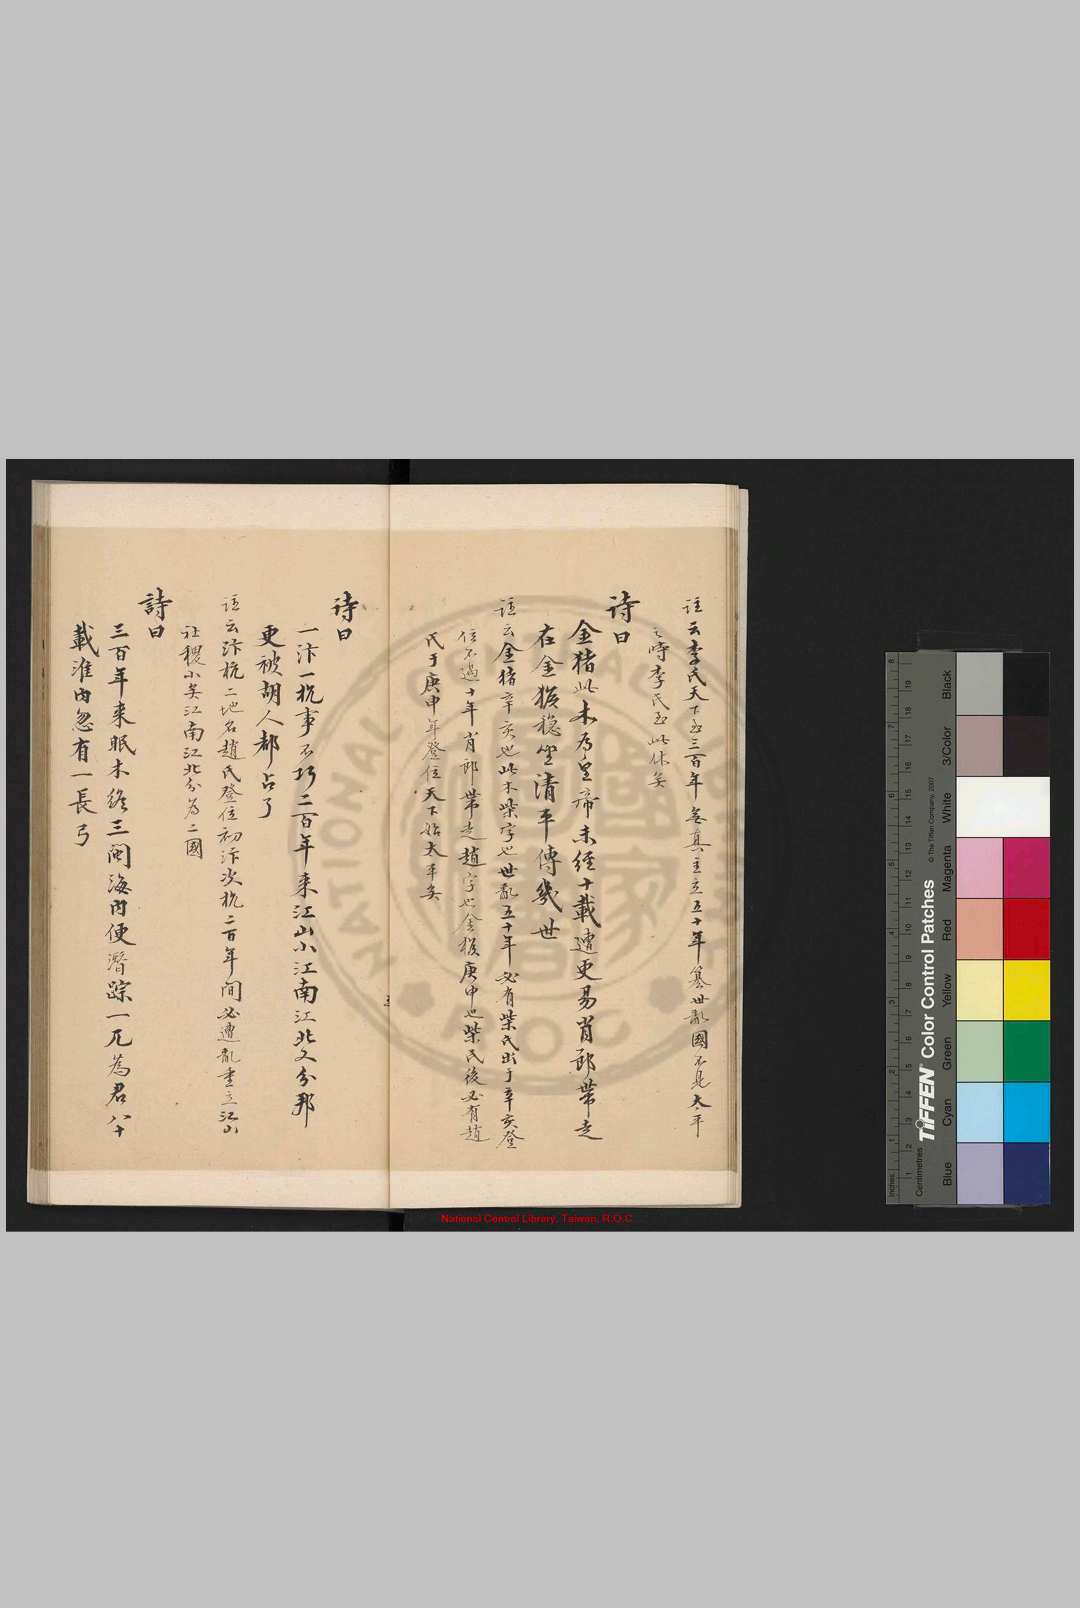 註云李氏天下至三百年無真主立五十年篡世亂國不見太平
之時李氏至此休矣
诗曰
金猪此木為皇帝未經十載遭更易肖郎帶走
在金猴稳坐清平傳幾世
註云金猪辛亥也此木柴字也世亂五十年必有柴氏出于辛亥登
位不過十年肖郎帶走趙字也金猴庚申也柴氏後必有趙
氏于庚申年登位天下始太平矣
诗曰
一汴一杭事不巧二百年来江山小江南江北又分邦
更被胡人都占了
註云汴杭二地名趙氏登位初汴次杭二百年间必遭亂重立江山
社稷小矣江南江北分為二國
詩曰
三百年来眠木終三闽海内便潛踪一兀為君八十
載淮内忽有一長弓
National Central Library, Taiwan, R.O.C
NATIONAL CENTRAL
R.O.C
Inches
Centimetres
TIFFEN Color Control Patches
© The Tiffen Company, 2007
Blue
Cyan
Green
Yellow
Red
Magenta
White
3/Color
Black